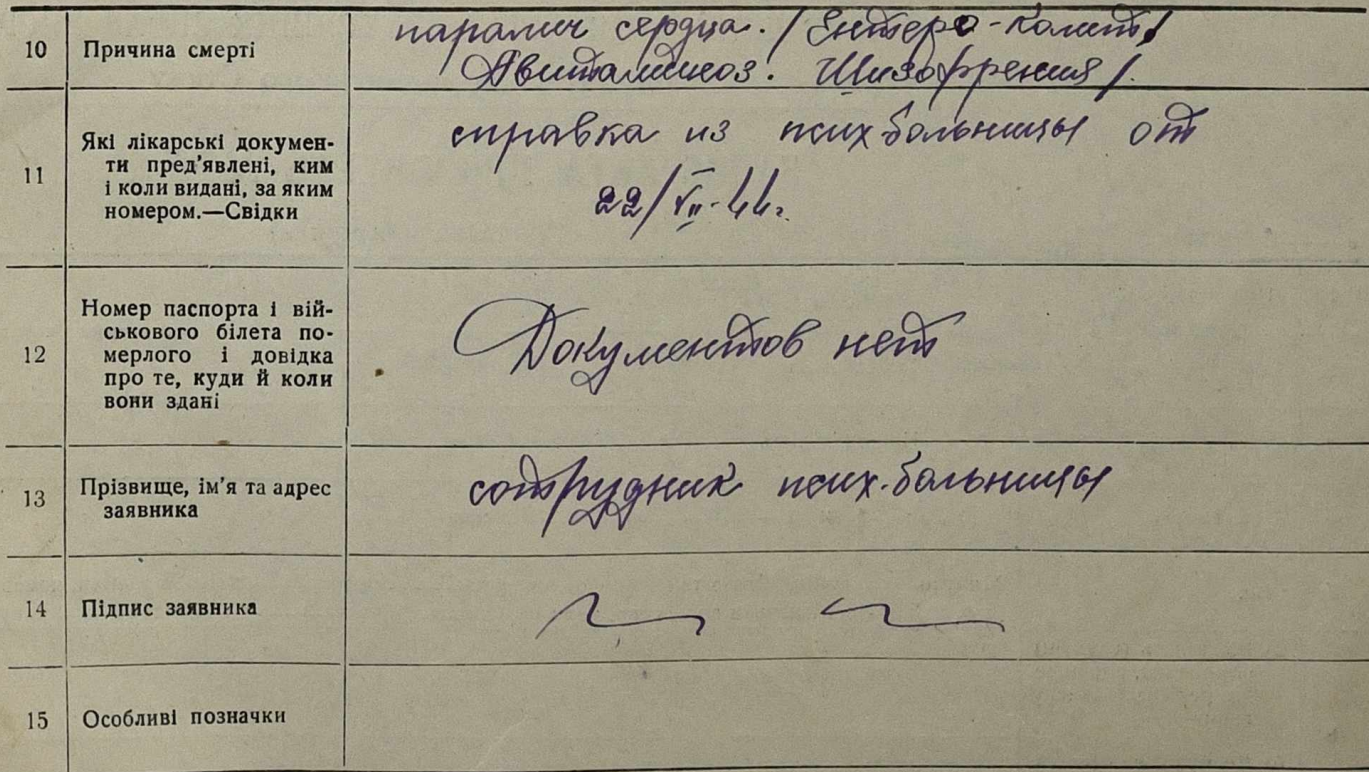 10 Причина смерти
паралич сердца. / Ентеро-колит,
Авитаминоз. Шизофрения /.
11 Які лікарські докумен-
ти пред'явлені, ким
і коли видані, за яким
номером.—Свідки
справка из псих больницы от
22/VII-44г.
12 Номер паспорта і вій-
ськового білета по-
мерлого і довідка
про те, куди й коли
вони здані
Документов нет
13 Прізвище, ім'я та адрес
заявника
сотрудник псих. больницы
14 Підпис заявника
15 Особливі позначки